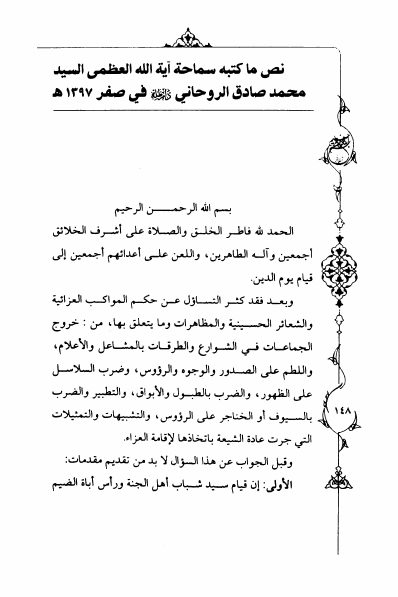 نص ما كتبه سماحة آية الله العظمى السيد
محمد صادق الروحاني في صفر ١٣٩٧ هـ
بسم الله الرحمـــن الرحيم
الحمد لله فاطر الخلق والصلاة على أشرف الخلائق
أجمعين وآلـه الطاهرين، واللعن علـى أعدائهم أجمعين إلى
قيام يوم الدين.
وبعـد فقد كثر التساؤل عـن حكـم المواكب العزائية
والشعائر الحسـينية والمظاهرات وما يتعلق بها، من : خروج
الجماعات فـي الشـوارع والطرقات بالمشـاعل والأعلام،
واللطم على الصدور والوجوه والرؤوس، وضرب السلاسل
على الظهور، والضرب بالطبـول والأبواق، والتطبير والضرب
بالسـيوف أو الخناجر على الرؤوس، والتشبيهات والتمثيلات
التي جرت عادة الشيعة باتخاذها لإقامة العزاء.
وقبل الجواب عن هذا السؤال لا بد من تقديم مقدمات:
الأولى: إن قيام سيد شـباب أهل الجنة ورأس أباة الضيم
١٤٨